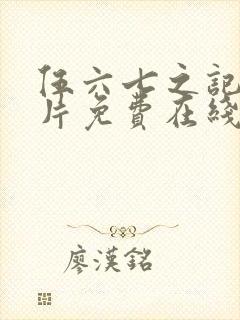 伍六七之記
片免費在綫
廖漢銘